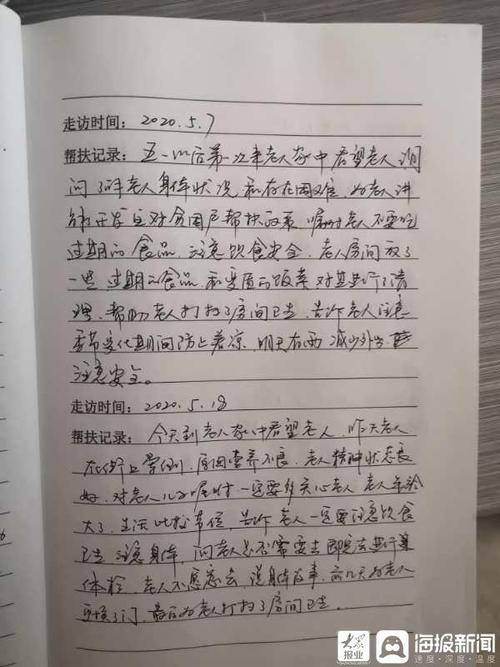 走访时间：2020.5.7
帮扶记录：五一以后第一次来老人家中看望老人，询
问了解老人身体状况和存在困难，为老人讲
对贫困户帮扶政策，嘱咐老人不要吃
过期的食品，注意饮食安全，老人房间放了
一些过期的食品和变质的饭菜对其进行了清
理，帮助老人打扫了房间卫生，告诉老人注意
季节变化期间防止着凉，明天有雨减少外出
注意安全。
走访时间：2020.5.18
帮扶记录：今天到老人家中看望老人，昨天老人
在街上晕倒，原因营养不良，老人精神状态良
好，对老人儿子嘱咐一定要多关心老人，老人年龄
大了，生活比较单位，告诉老人一定要注意饮食
卫生注意身体，问老人需要去医院进行身
体检，老人不愿意去，说身体没事，前几天为老人
换了门，最后为老人打扫了房间卫生。
大众报业 海报新闻
速度·深度·温度